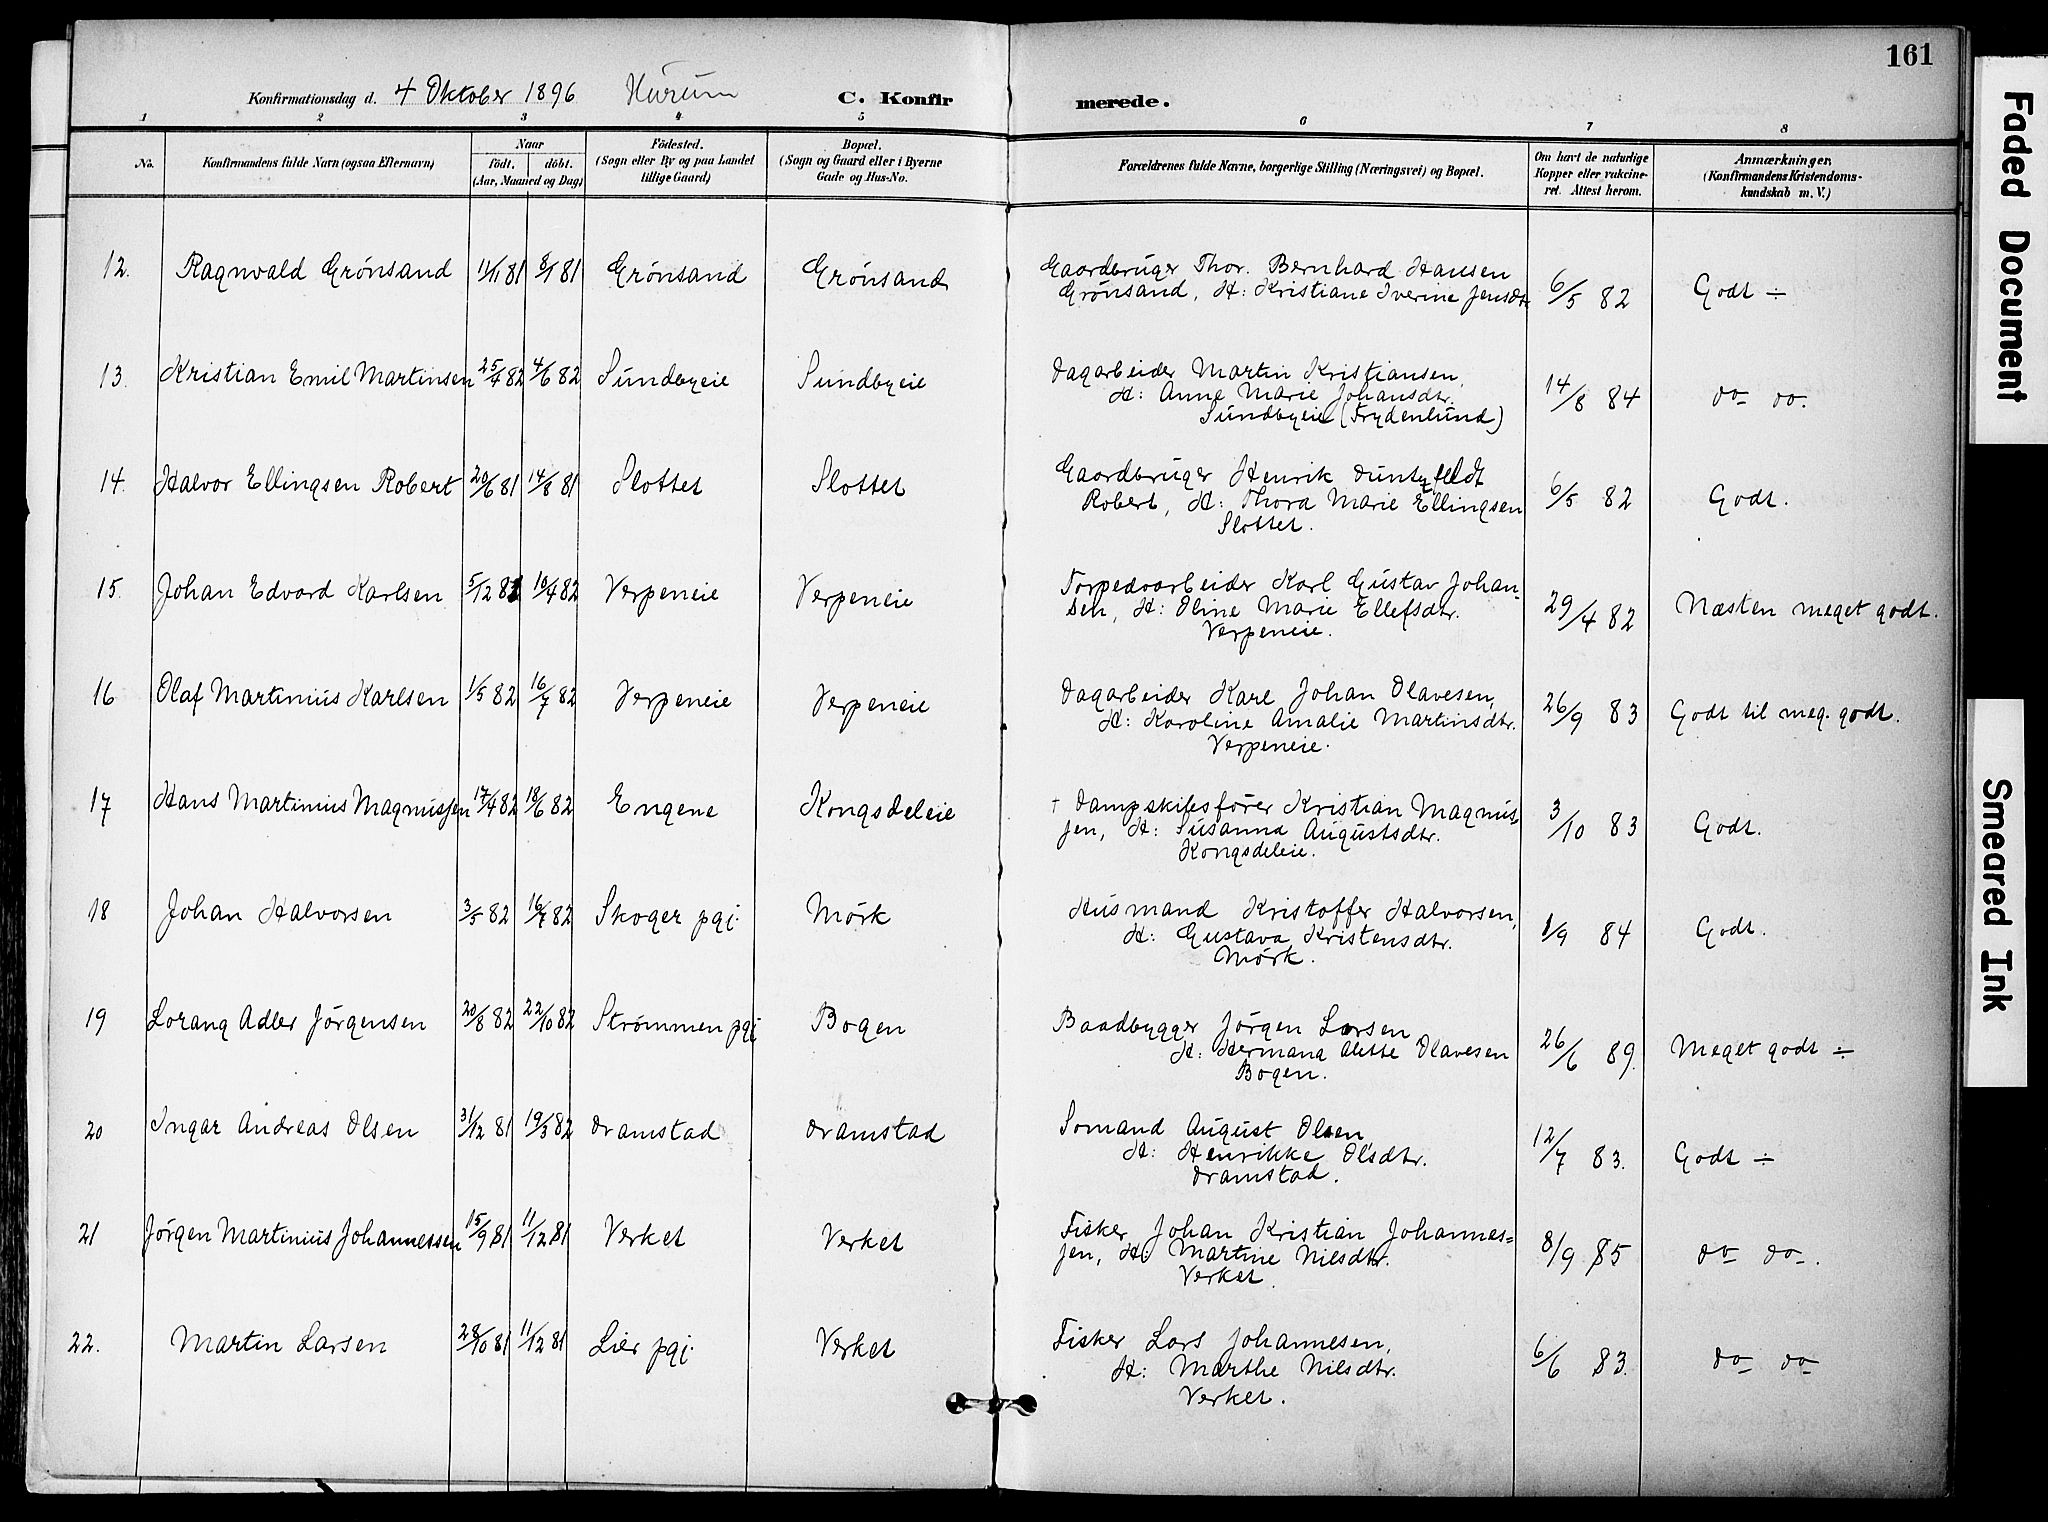 161
Konfirmationsdag d. 4 Oktober 1896 Hurum C. Konfir merede.
1 2 3 4 5 6 7 8
No. Konfirmandens fulde Navn (ogsaa Efternavn) Naar født. døbt. (Aar, Maaned og Dag) Fødested. (Sogn eller By og paa Landet tillige Gaard) Bopæl. (Sogn og Gaard eller i Byerne Gade og Hus-No. Forældrenes fulde Navne, borgerlige Stilling (Næringsvei) og Bopæl. Om havt de naturlige Kopper eller vakcineret. Attest herom. Anmærkninger. (Konfirmandens Kristendomskundskab m. V.)
12. Ragnvald Grönsand 11/11 81 8/1 81 Grönsand Grönsand Gaardbruger Thor. Bernhard Hansen
Grönsand, H: Kristiane Iverine Jensdtr. 6/5 82 Godt ÷
13. Kristian Emil Martinsen 25/4 82 4/6 82 Sundbyeie Sundbyeie Dagarbeider Martin Kristiansen,
H: Anne Marie Johansdtr. 14/8 84 do do.
Sundbyeie (Frydenlund)
14. Halvor Ellingsen Robert 20/6 81 14/8 81 Slottet Slottet Gaardbruger Henrik
Robert, H: Thora Marie Ellingsen 6/5 82 Godt.
Slottet.
15. Johan Edvard Karlsen 5/12 81 10/4 82 Verpeneie Verpeneie Torpedoarbeider Karl Gustav Johan-
sen, H: Oline Marie Ellefsdtr. 29/4 82 Næsten meget godt.
Verpeneie.
16 Olaf Martinius Karlsen 1/5 82 16/7 82 Verpeneie Verpeneie Dagarbeider Karl Johan Olavesen,
H: Karoline Amalie Martinsdtr. 26/9 83 Godt til meg. godt.
Verpeneie.
17 Hans Martinius Magnussen 17/4 82 18/6 82 Engene Kongsdeleie † Dampskibsfører Kristian Magnus-
sen, H: Susanna Augustsdtr. 3/10 83 Godt.
Kongsdeleie.
18 Johan Halvorsen 3/5 82 16/7 82 Skoger pgj. Mörk Husmand Kristoffer Halvorsen,
H: Gustava Kristensdtr. 1/9 84 Godt.
Mörk.
19 Lorang Adler Jörgensen 20/8 82 22/10 82 Strømmen pgj Bogen Baadbygger Jörgen Larsen
H: Hermana Alette Olavesen 26/6 89. Meget godt ÷
Bogen.
20 Ingar Andreas Olsen 31/12 81 19/3 82 Dramstad Dramstad Sömand August Olsen
H: Henrikke Olsdtr. 12/7 83. Godt ÷
Dramstad.
21 Jörgen Martinius Johannessen 15/9 81 11/12 81 Verket Verket Fisker Johan Kristian Johannes=
sen, H: Martine Nilsdtr. 8/9 85 do do.
Verket.
22. Martin Larsen 28/10 81 11/12 81 Lier pgj. Verket Fisker Lars Johannesen,
H: Marthe Nilsdtr. 6/6 83. do do
Verket.
Faded Document
Smeared Ink